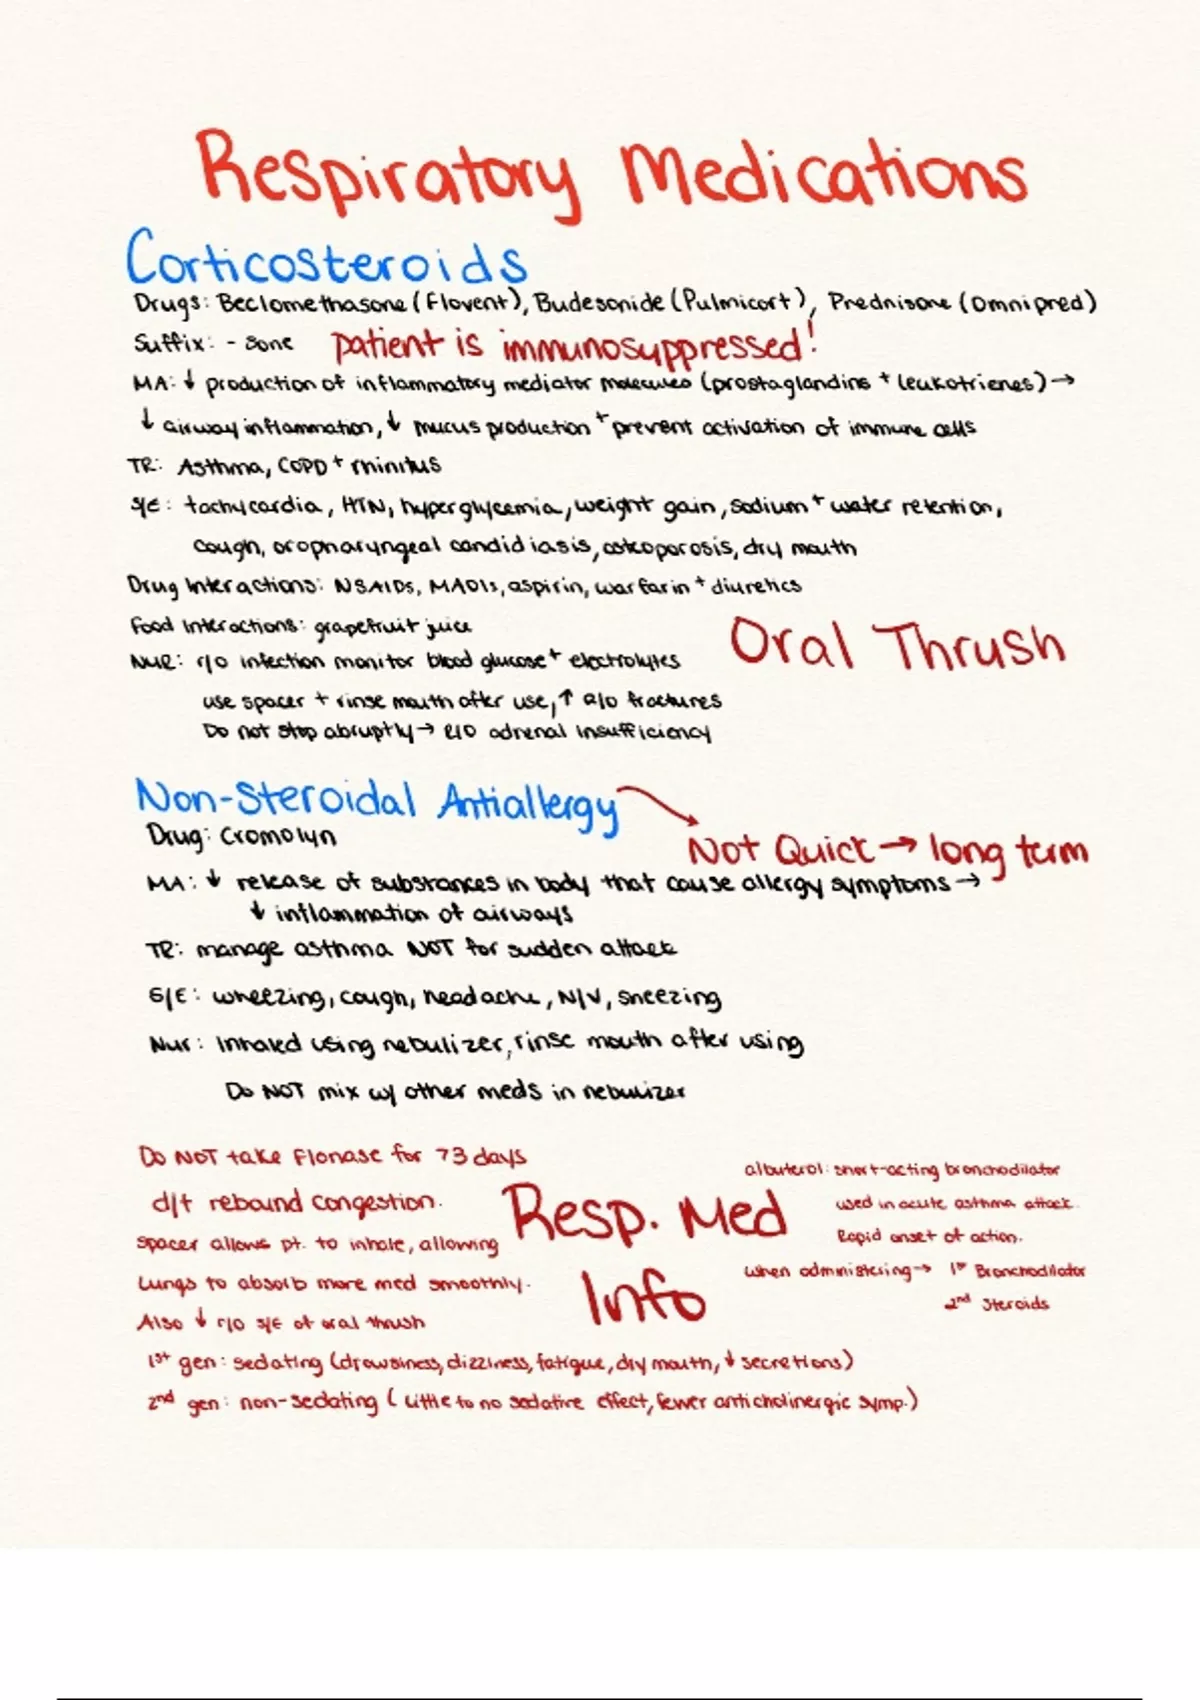 Respiratory Medications
Corticosteroids
Drugs: Beclomethasone (Flovent), Budesonide (Pulmicort), Prednisone (Omnipred)
Suffix: - sone patient is immunosuppressed!
MA: ↓ production of inflammatory mediator molecules (prostaglandins + leukotrienes) →
↓ airway inflammation, ↓ mucus production + prevent activation of immune cells
TR: Asthma, COPD + rhinitus
S/E: tachycardia, HTN, hyperglycemia, weight gain, sodium + water retention,
cough, oropharyngeal candidiasis, osteoporosis, dry mouth
Drug Interactions: NSAIDs, MAOIs, aspirin, warfarin + diuretics
Food Interactions: grapefruit juice
Oral Thrush
NUR: r/o infection monitor blood glucose + electrolytes
use spacer + rinse mouth after use, ↑ R/O fractures
Do not stop abruptly → R/O adrenal insufficiency
Non-Steroidal Antiallergy
Drug: Cromolyn
Not Quick → long term
MA: ↓ release of substances in body that cause allergy symptoms →
↓ inflammation of airways
TR: manage asthma NOT for sudden attack
S/E: wheezing, cough, headache, N/V, sneezing
Nur: Inhaled using nebulizer, rinse mouth after using
Do NOT mix w/ other meds in nebulizer
Do NOT take Flonase for 73 days
d/t rebound congestion.
Spacer allows pt. to inhale, allowing
Lungs to absorb more med smoothly.
Also ↓ r/o s/e of oral thrush
Resp. Med
Info
albuterol: short-acting bronchodilator
used in acute asthma attack.
Rapid onset of action.
when administering → 1st Bronchodilator
2nd Steroids
1st gen: sedating (drowsiness, dizziness, fatigue, dry mouth, ↓ secretions)
2nd gen: non-sedating (Little to no sedative effect, fewer anticholinergic symp.)